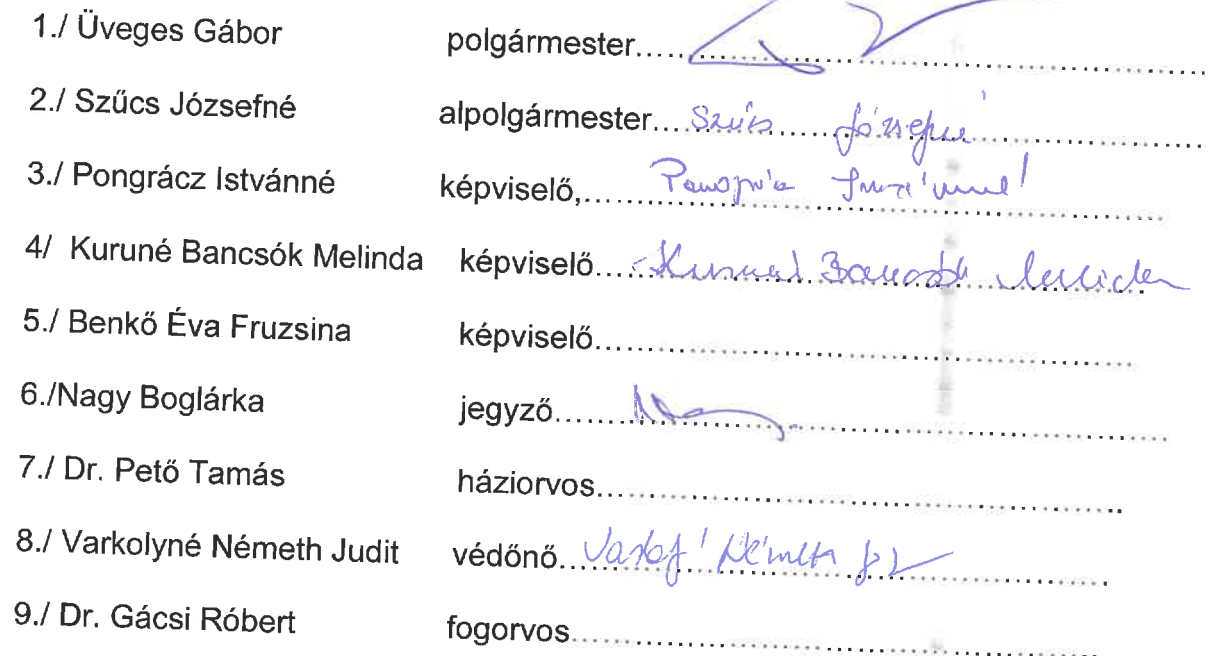 1./ Üveges Gábor polgármester...........................................................
2./ Szűcs Józsefné alpolgármester... Szűcs Józsefné
3./ Pongrácz Istvánné képviselő,...........................................................
4/ Kuruné Bancsók Melinda képviselő... Kuruné Bancsók Melinda
5./ Benkő Éva Fruzsina képviselő...........................................................
6./Nagy Boglárka jegyző...........................................................
7./ Dr. Pető Tamás háziorvos...........................................................
8./ Varkolyné Németh Judit védőnő... Németh
9./ Dr. Gácsi Róbert fogorvos...........................................................